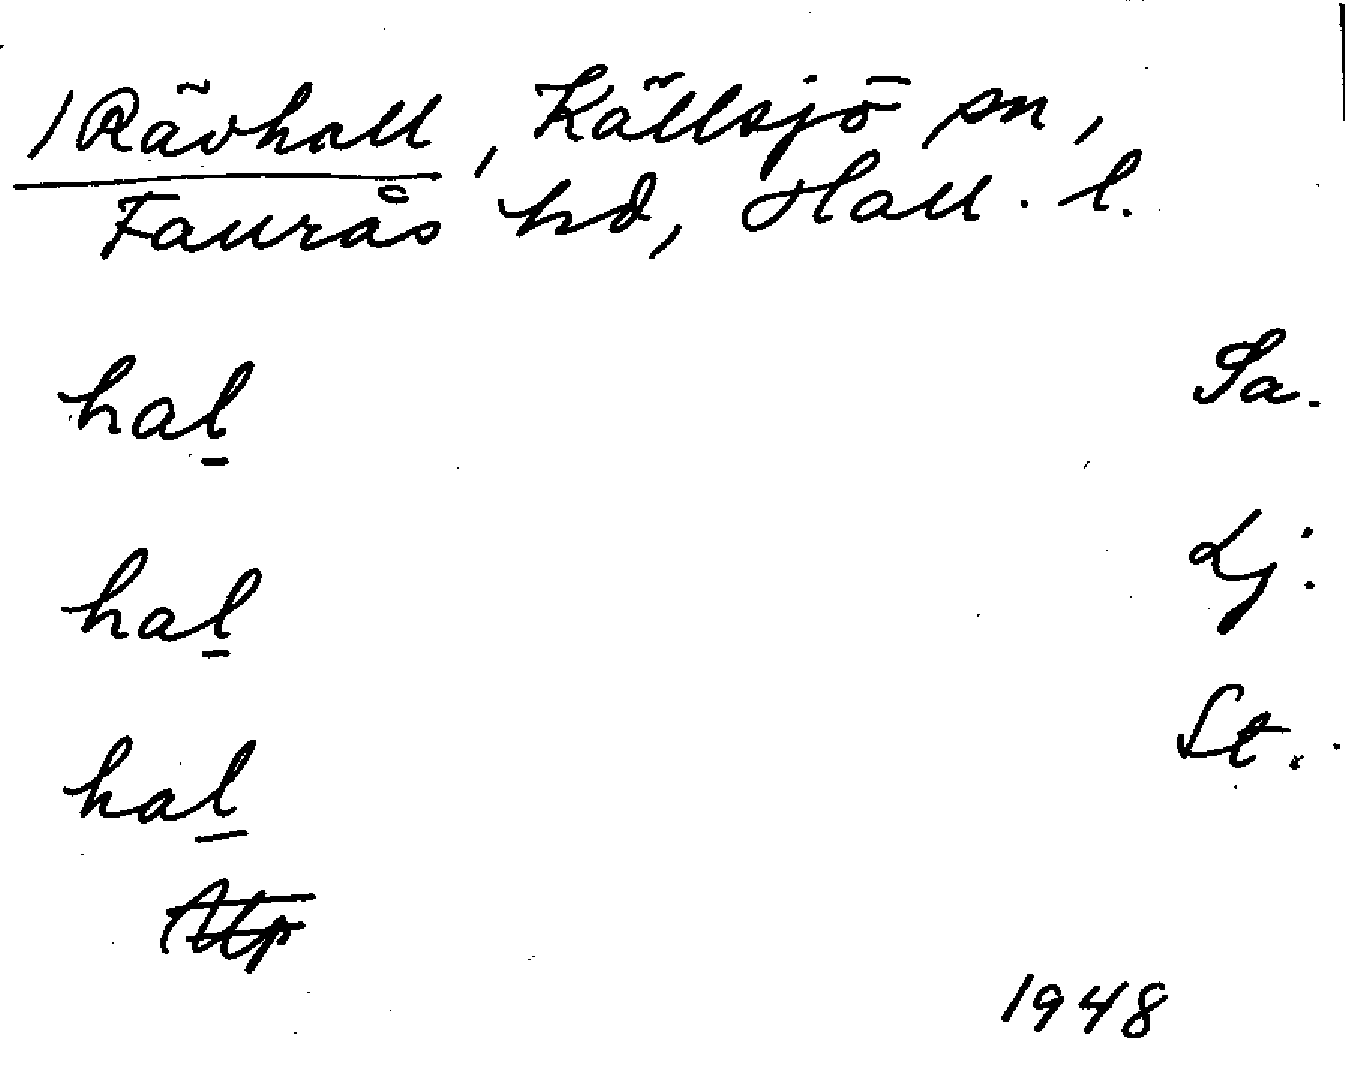 /Rävhall, Källsjö sn,
Faurås hd, Hall. l.
hal Sa.
hal Lj.
hal St.
1948